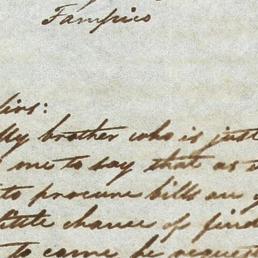 Tampico
Sirs:
My brother who is just
me to say that as
to procure bills on
little chance of find
to come he request